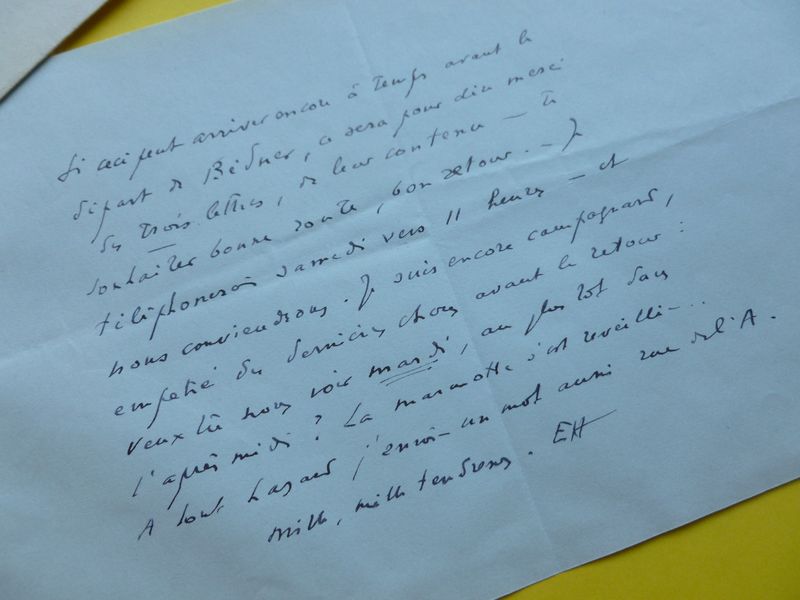 Si ceci peut arriver encore à temps avant le
départ de Bédner, ce sera pour dire merci
des trois lettres, de leur contenu – te
souhaiter bonne route, bon retour. – Je
téléphonerai samedi vers 11 heures – et
nous conviendrons. Je suis encore campagnard,
empetré des dernières choses avant le retour :
veux tu nous voir mardi, au plus tot dans
l'après midi ? La marmotte s'est reveillée...
A tout hasard j'envoie un mot aussi rue de l'A.
Mille, mille tendresses. EH